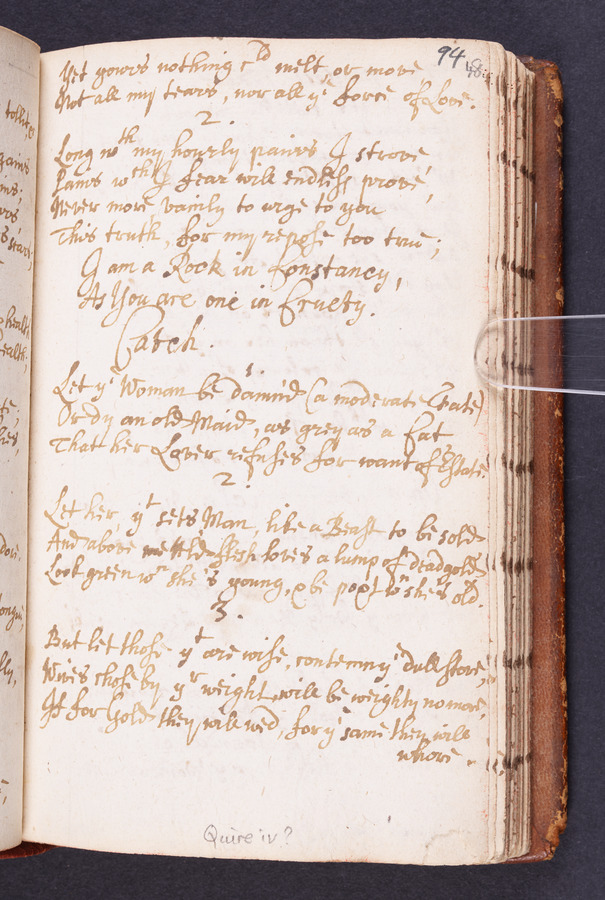 94
48
Yet yours nothing cld melt, or move,
Not all my tears, nor all ye force of Love.
2.
Long wth my hourly pains I strove,
Pains wch I fear will endless prove,
Never more vainly to urge to you
This truth, for my repose too true;
I am a Rock in Constancy,
As You are one in Cruelty.
Catch.
1.
Let ye Woman be damn'd (a moderate Fate)
Or dy an old Maid, as grey as a Cat
That her Lover refuses for want of Estate.
2
Let her, yt sets Man, like a Beast to be sold
And above flesh loves a lump of dead gold
Look green wn she's young, & be pox't wn she's old.
3.
But let those yt are wise, contemn ye dull store,
Wives chose by yr weight will be weighty no more,
If for Gold they will wed, for ye same they will
whore.
Quire iv?